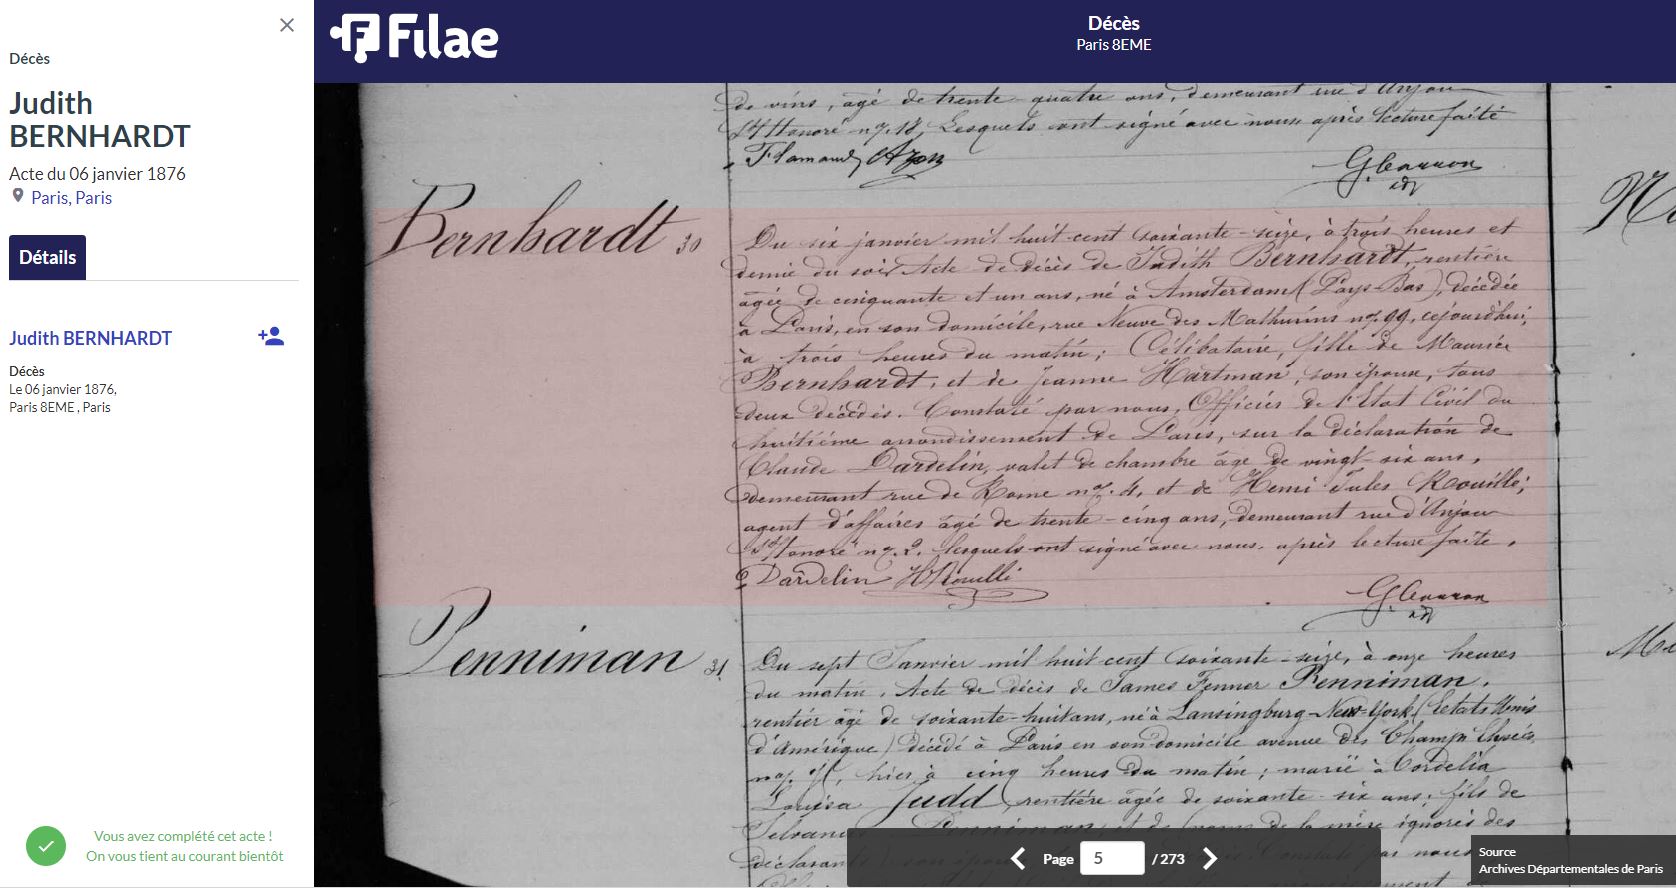 Décès
Judith
BERNHARDT
Acte du 06 janvier 1876
Paris, Paris
Détails
Judith BERNHARDT
Décès
Le 06 janvier 1876,
Paris 8EME , Paris
Vous avez complété cet acte !
On vous tient au courant bientôt
Filae
Décès
Paris 8EME
de vins, âgé de trente-quatre ans, demeurant rue d'Anjou
St Honoré no. 18, Lesquels ont signé avec nous après lecture faite
Bernhardt 30
Du six janvier mil huit cent soixante-seize, à trois heures et
demie du soir Acte de décès de Judith Bernhardt, rentière
âgée de cinquante et un ans, né à Amsterdam (Pays-Bas), décédée
à Paris, en son domicile, rue Neuve des Mathurins no. 99, cejourd'hui,
à trois heures du matin ; Célibataire, fille de Maurice
Bernhardt, et de Jeanne Hartman, son épouse, tous
deux décédés. Constaté par nous, Officier de l'Etat Civil du
huitième arrondissement de Paris, sur la déclaration de
Claude Dardelin, valet de chambre âgé de vingt-six ans,
demeurant rue de Rome no. 4, et de Henri Jules Rouillé,
agent d'affaires âgé de trente-cinq ans, demeurant rue d'Anjou
St Honoré no. 2. lesquels ont signé avec nous après lecture faite.
Dardelin
Penniman 31
Du sept Janvier mil huit cent soixante-seize, à onze heures
du matin. Acte de décès de James Fenner Penniman,
rentier âgé de soixante-huit ans, né à Lansingburg-New-York (Etats Unis
d'Amérique) décédé à Paris en son domicile avenue des Champs Elysées
hier à cinq heures du matin ; marié à Cordelia
Louisa Judd, rentière âgée de soixante-six ans ; fils de
Penniman, et de (noms de la mère ignorés des
déclarants)
Page 5 / 273
Source
Archives Départementales de Paris